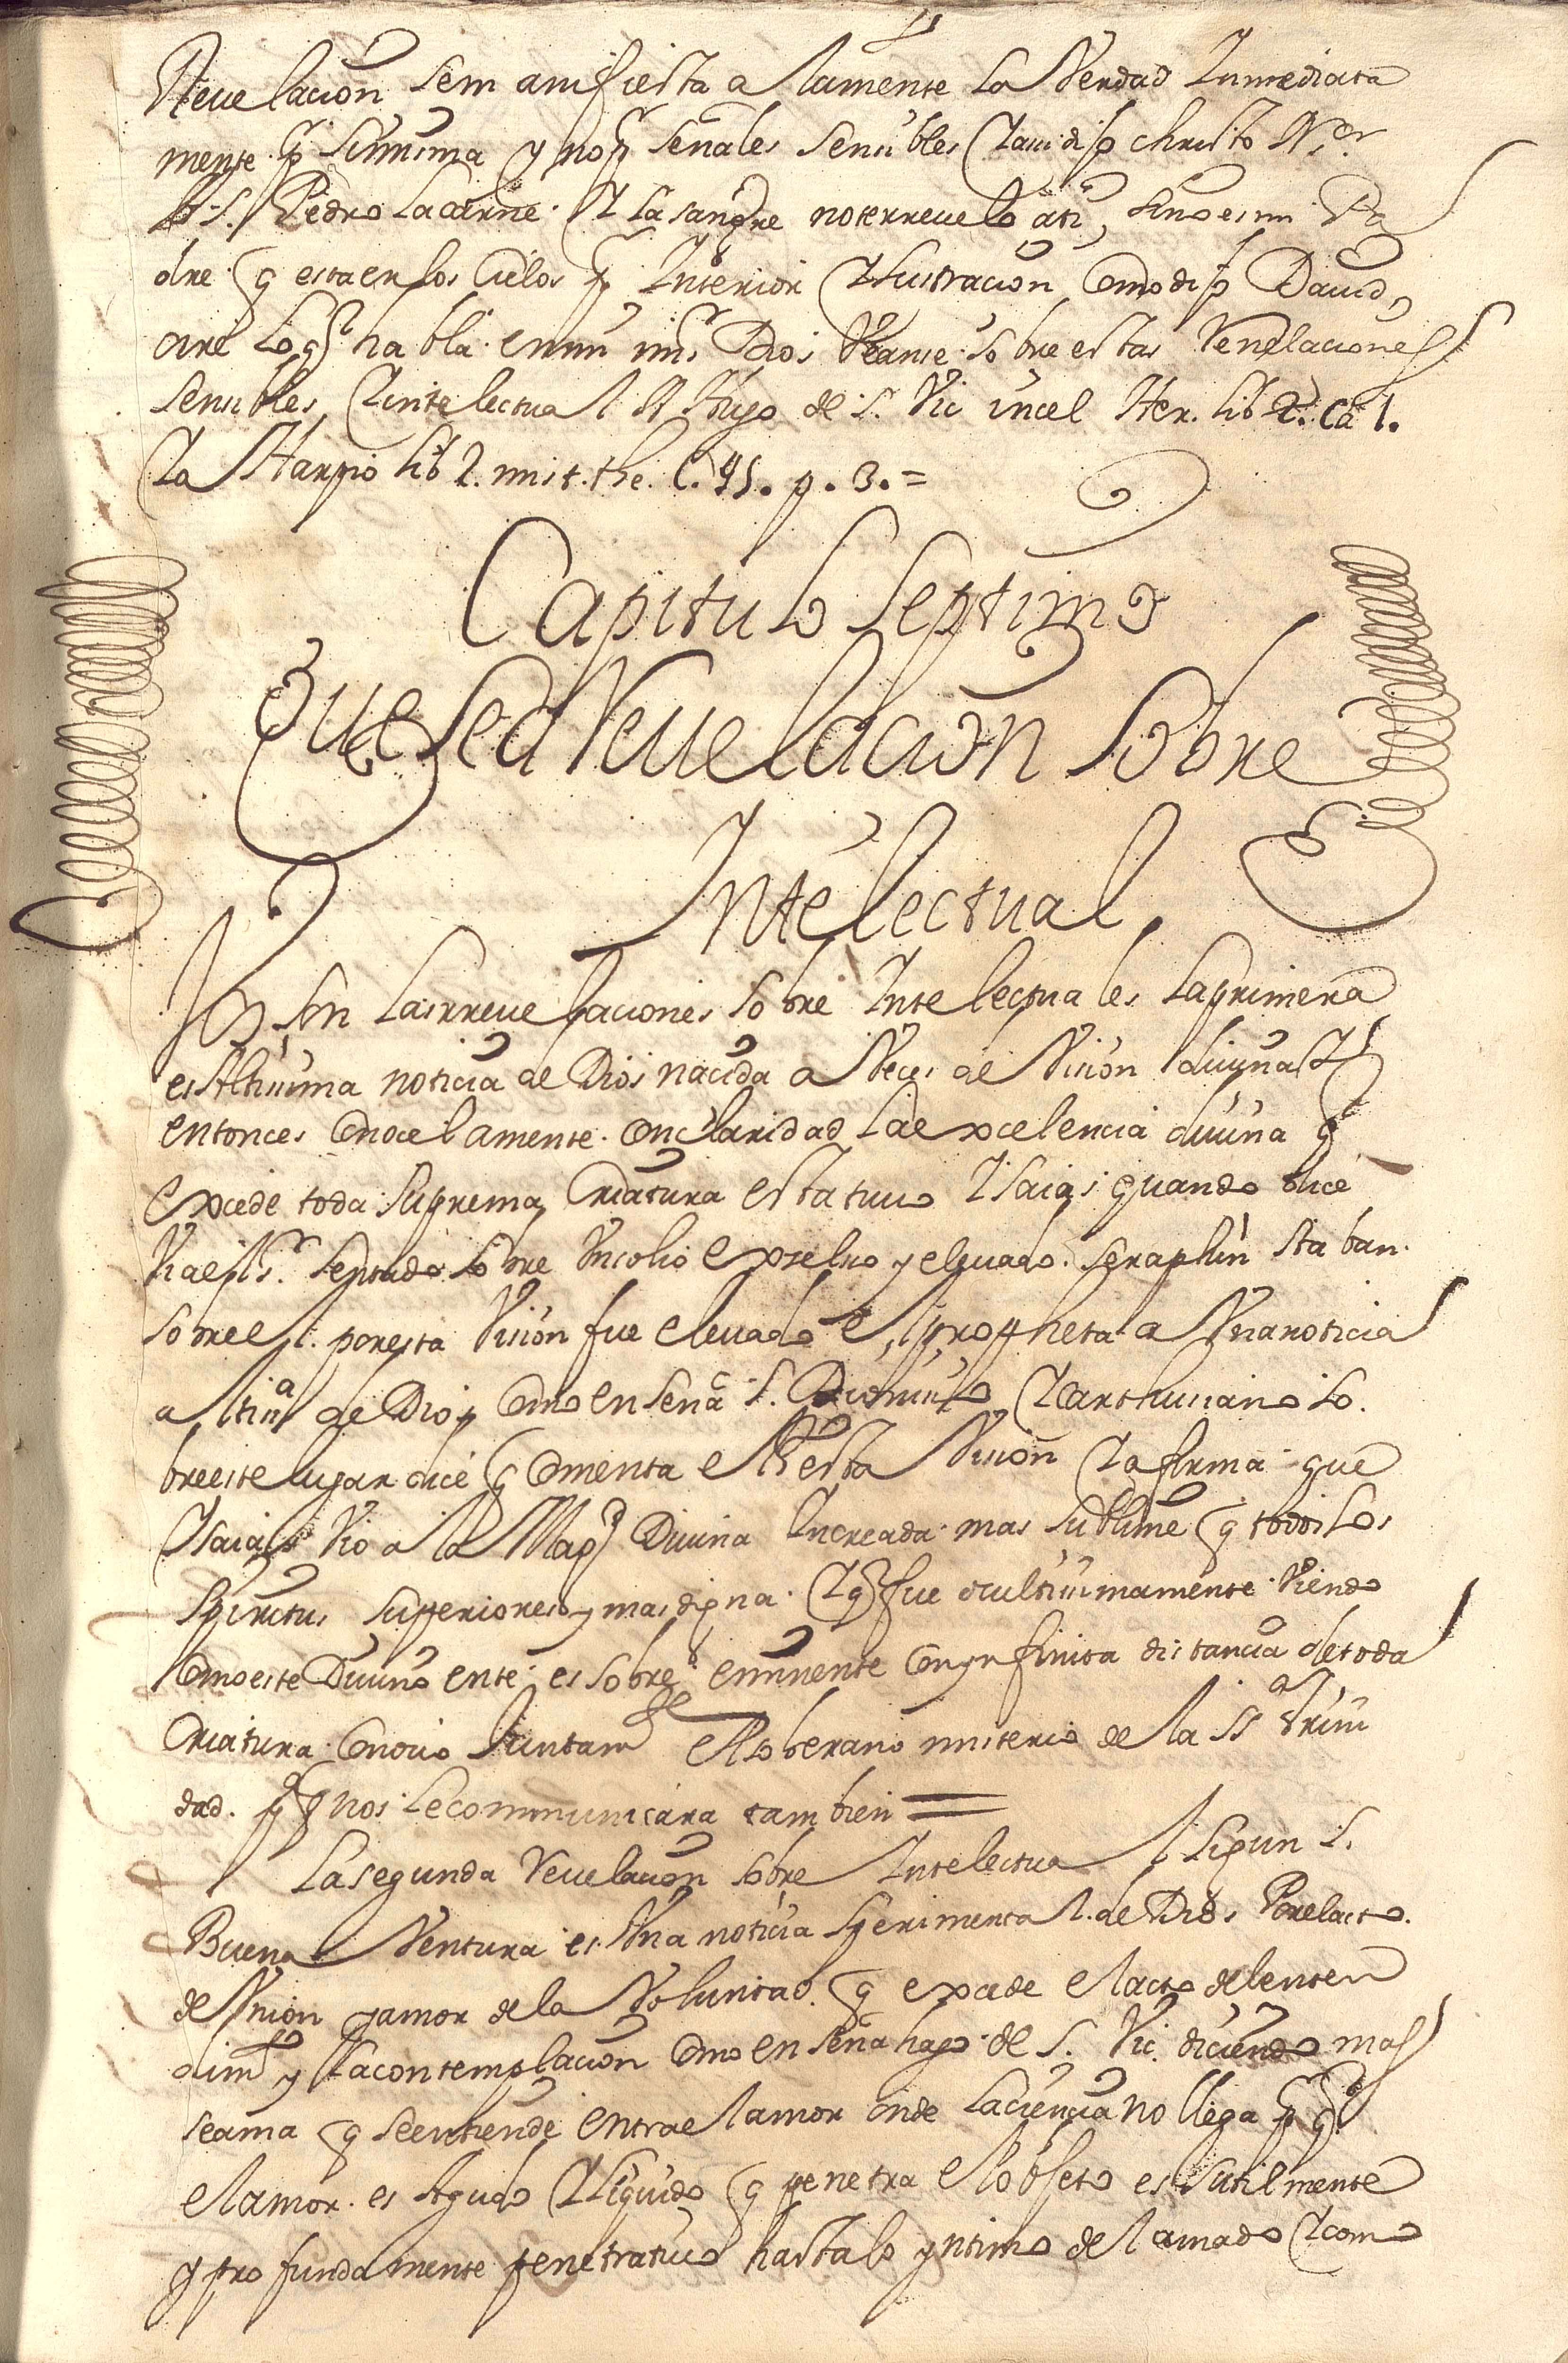 Revelacion semanifiesta a lamente la Verdad Inmediata
mente p Simisma y no p señales Sensibles Y aui dijo Christo N.or
a S. Pedro la carne Y la sangre noterrevelo ati, sino es mi Pa
dre q esta en los Cielos p Interior Ylustracion Como dijo David,
oire lo q habla en mi mi Dios Veanse sobre estas Revelaciones
Sensibles, Y intelectual A Hugo de S. Vic in cel Iher. lib 2. Ca 1.
Y a Harpio lib 2. mist. the. C. 95. p. 3. =
Capitulo Septimo
Que sea Revelacion Sobre
Intelectual,
En las rrevelaciones sobre Intelectuales la primera
es Altissima noticia de Dios nacida a Veces de Vision divina Y
entonces Conoce lamente con claridad la excelencia divina q
excede toda suprema Criatura esta tuvo Isaias quando dice
Vi al S.r Sentado sobre Un solio excelso y elevado. Seraphin staban
sobre el. por esta Vision fue elevado el propheta a Una noticia
altis.a de Dios Como enseña S. Dionisio, Y Cartusiano so
bre este lugar dice q Comenta esta Vision Y afirma que
Isaias Vio a la Mag.d Divina Increada mas sublime q todos los
Spiritus superiores y mas digna. Y q fue ocultissimamente Viendo
Como este Divino ente es sobre eminente Con ynfinita distancia de toda
Criatura Conocio Juntam.te el soberano misterio de la SS.a Trini
dad. p q nos le communicara tambien =
La segunda Revelacion sobre Intelectual Segun S.
Buena Ventura es Una noticia Sperimental de Dios Por el acto
de Union y amor de la Voluntad. q excede el acto del enten
dim.to y la contemplacion Como enseña hugo de S. Vic. diciendo mas
se ama q se entiende entra el amor onde la ciencia no llega p q
el amor es Agudo Y liquido q penetra el objeto es sutilmente
y profundamente penetrativo hasta lo yntimo del amado Y como